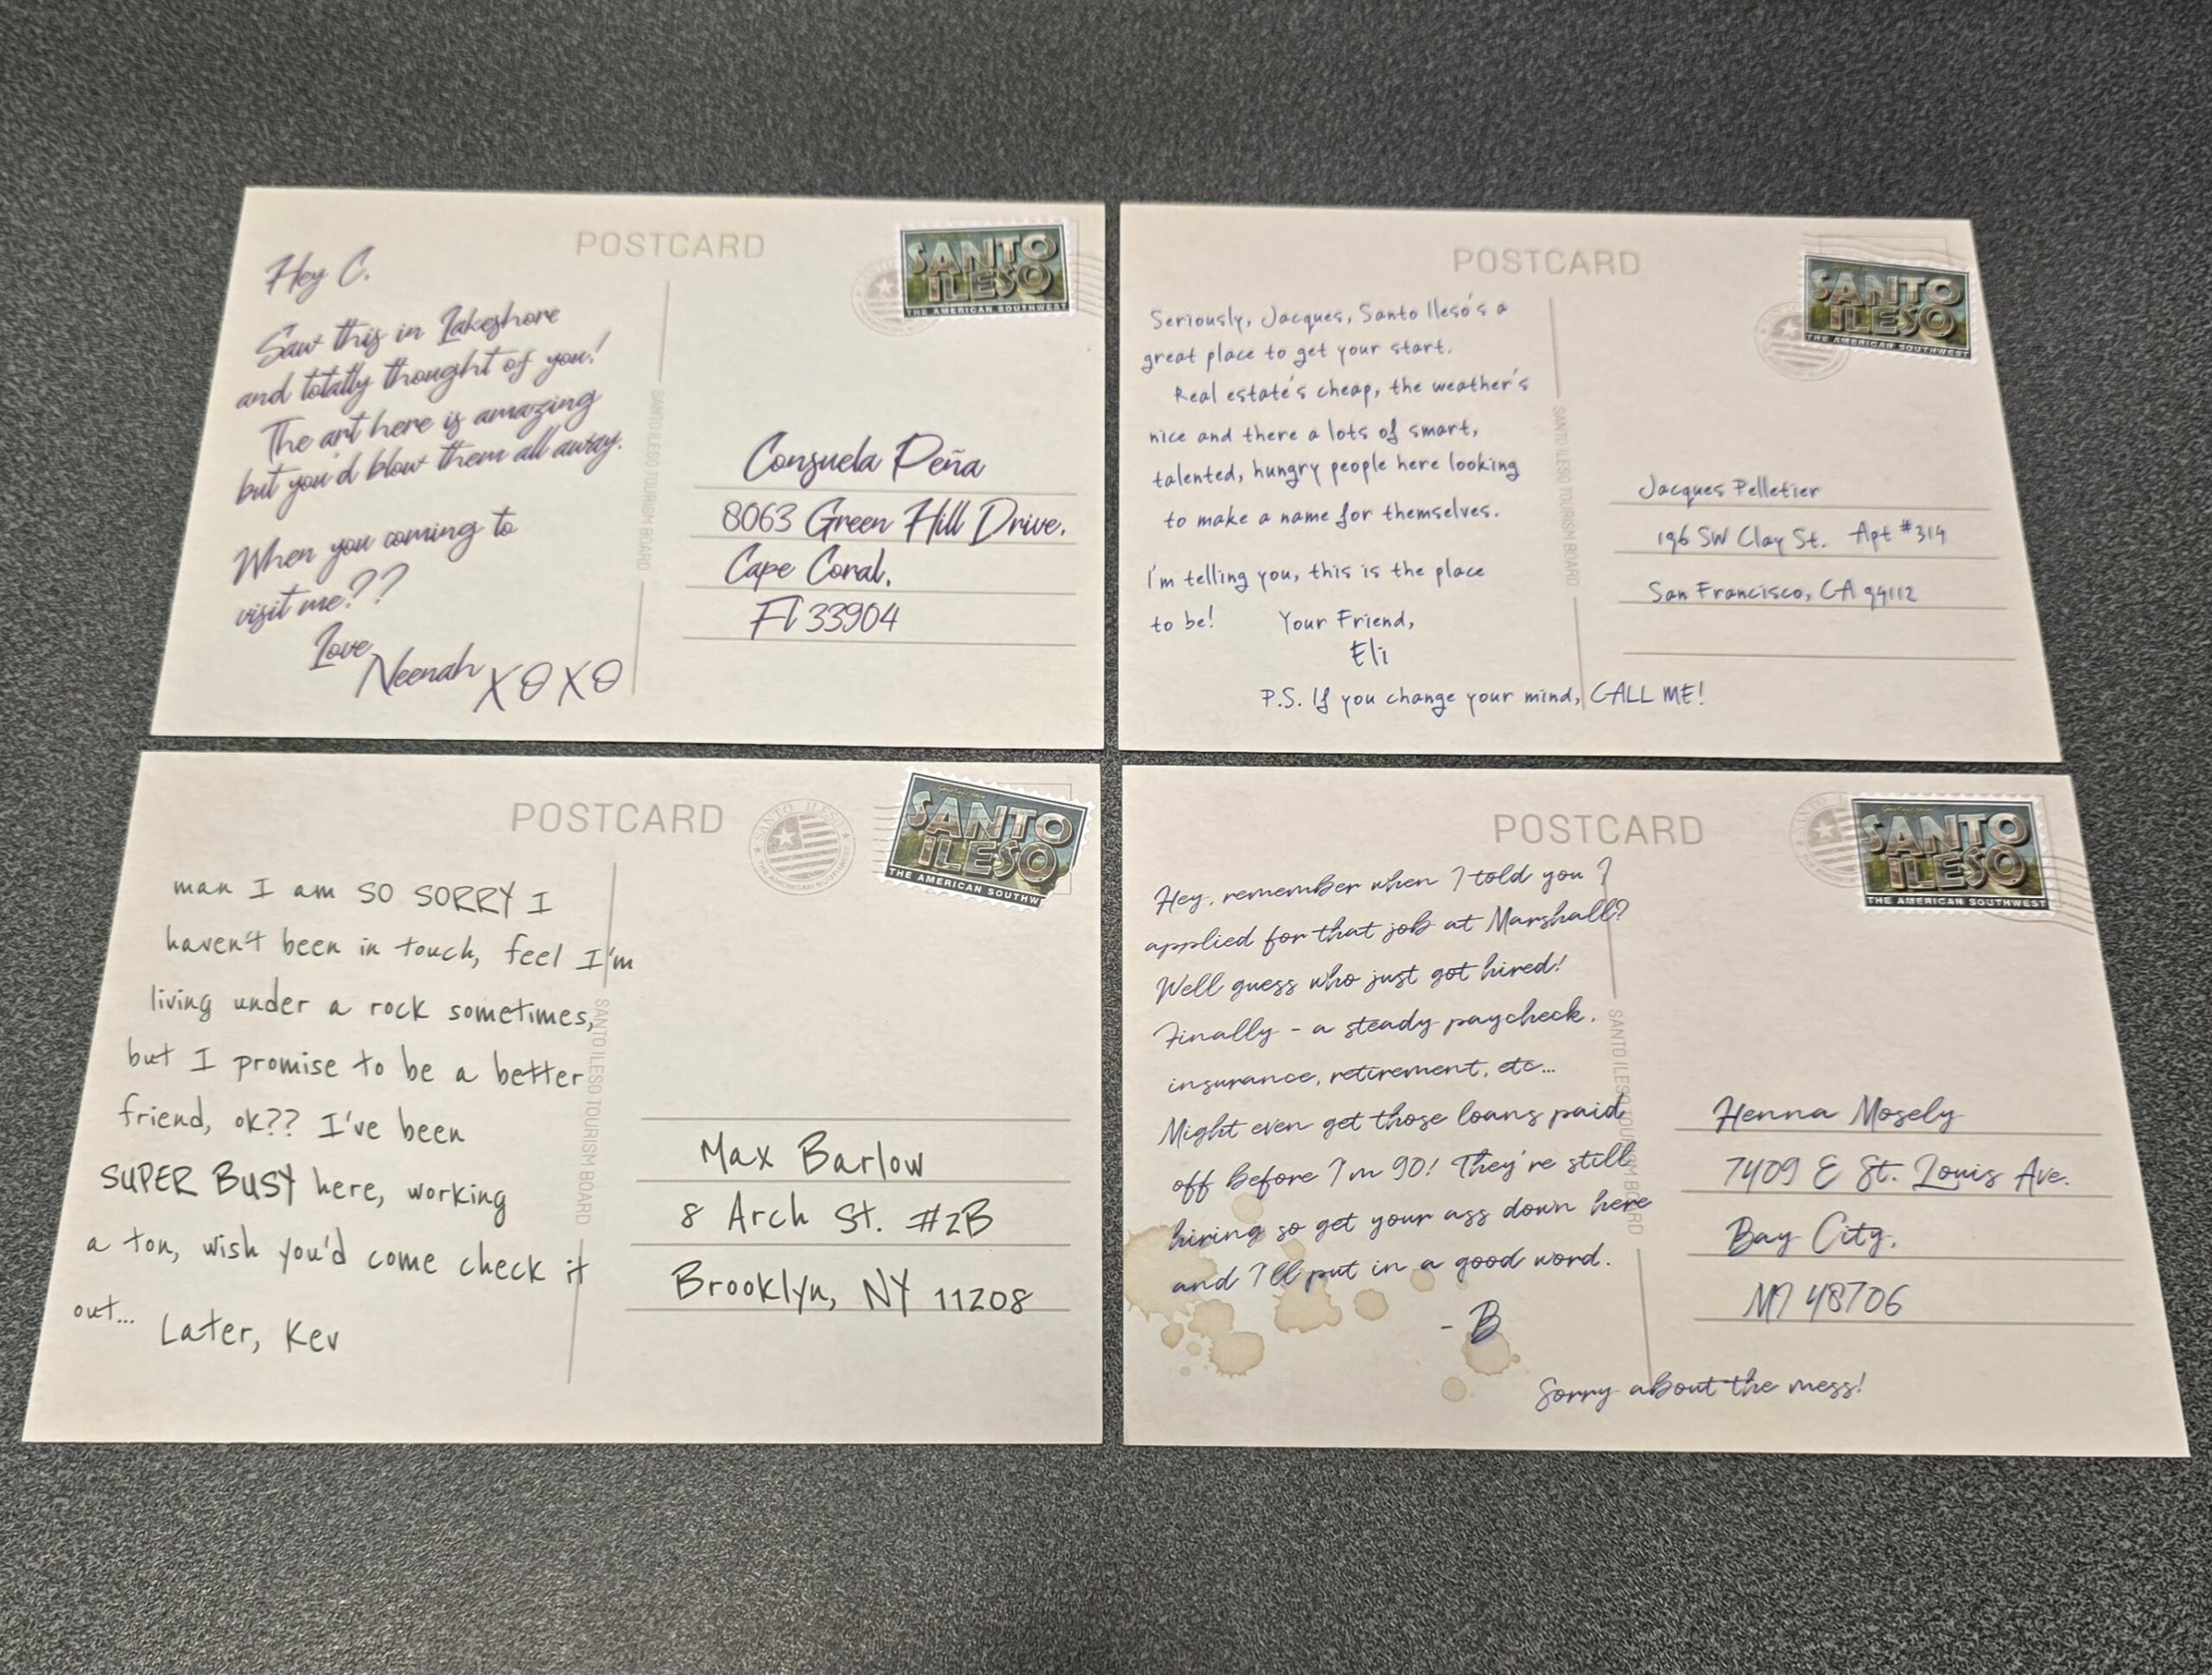 POSTCARD
SANTO
ILESO
THE AMERICAN SOUTHWEST
Hey C.
Saw this in Lakeshore
and totally thought of you!
The art here is amazing
but you'd blow them all away.
When you coming to
visit me??
Love
Neenah XOXO
SANTO ILESO TOURISM BOARD
Consuela Peña
8063 Green Hill Drive.
Cape Coral,
Fl 33904
POSTCARD
SANTO
ILESO
THE AMERICAN SOUTHWEST
Seriously, Jacques, Santo Ileso's a
great place to get your start.
Real estate's cheap, the weather's
nice and there a lots of smart,
talented, hungry people here looking
to make a name for themselves.
I'm telling you, this is the place
to be! Your Friend,
Eli
P.S. If you change your mind, CALL ME!
SANTO ILESO TOURISM BOARD
Jacques Pelletier
196 SW Clay St. Apt #314
San Francisco, CA 94112
POSTCARD
SANTO ILESO
THE AMERICAN SOUTHWEST
Greetings from
SANTO
ILESO
THE AMERICAN SOUTHW
man I am SO SORRY I
haven't been in touch, feel I'm
living under a rock sometimes,
but I promise to be a better
friend, ok?? I've been
SUPER BUSY here, working
a ton, wish you'd come check it
out...
Later, Kev
SANTO ILESO TOURISM BOARD
Max Barlow
8 Arch St. #2B
Brooklyn, NY 11208
POSTCARD
Greetings from
SANTO
ILESO
THE AMERICAN SOUTHWEST
Hey, remember when I told you I
applied for that job at Marshall?
Well guess who just got hired!
Finally - a steady paycheck,
insurance, retirement, etc...
Might even get those loans paid
off before I'm 90! They're still
hiring so get your ass down here
and I'll put in a good word.
- B
Sorry about the mess!
SANTO ILESO TOURISM BOARD
Henna Mosely
7409 E St. Louis Ave.
Bay City,
MI 48706